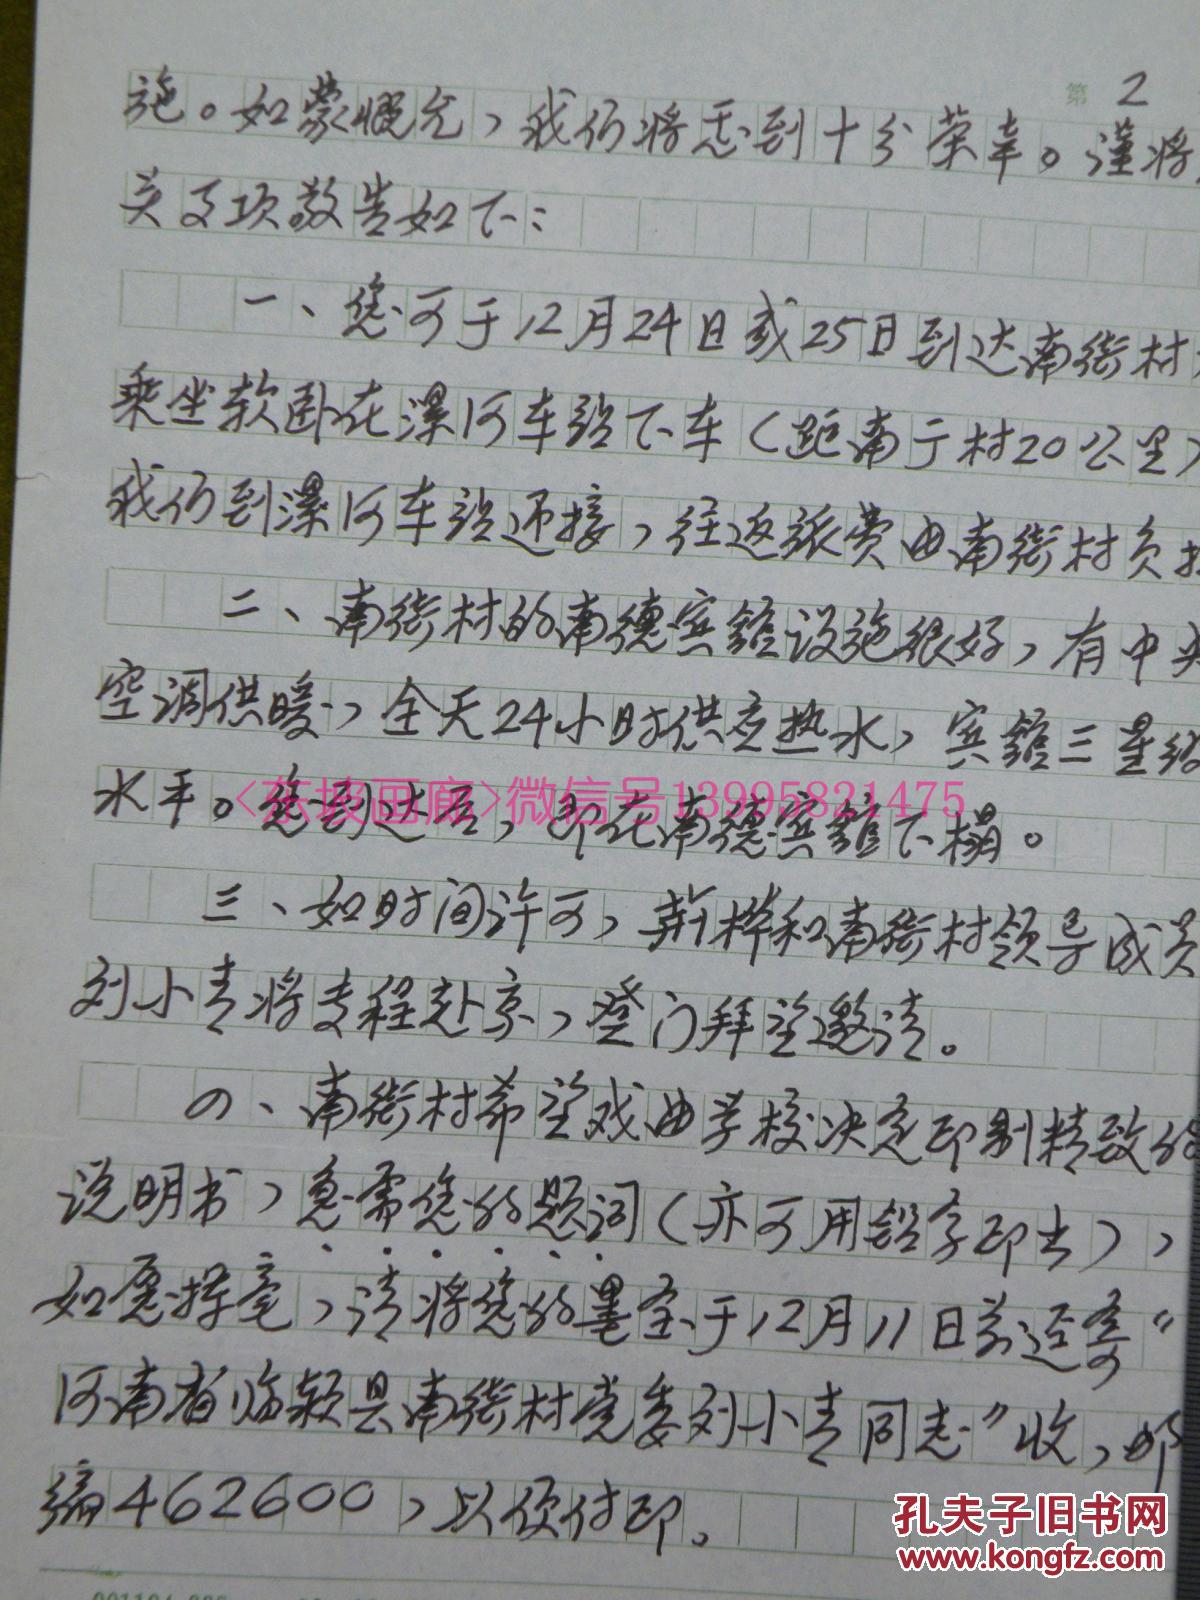 第 2
施。如蒙慨允，我们将感到十分荣幸。谨将
关事项敬告如下：
一、您可于12月24日或25日到达南街村
乘坐软卧在漯河车站下车（距南于村20公里）
我们到漯河车站迎接，往返旅费由南街村负担
二、南街村的南德宾馆设施很好，有中央
空调供暖，全天24小时供应热水，宾馆三星级
水平。您到达后，即在南德宾馆下榻。
<东坡画廊>微信号13995821475
三、如时间许可，荆桦和南街村领导成员
刘小青将专程赴京，登门拜望邀请。
四、南街村希望戏曲学校决定印制精致的
说明书，急需您的题词（亦可用铅字印出），
如愿挥毫，请将您的墨宝于12月11日前迳寄"
河南省临颍县南街村党委刘小青同志"收，邮
编462600，以便付印。
孔夫子旧书网
www.kongfz.com